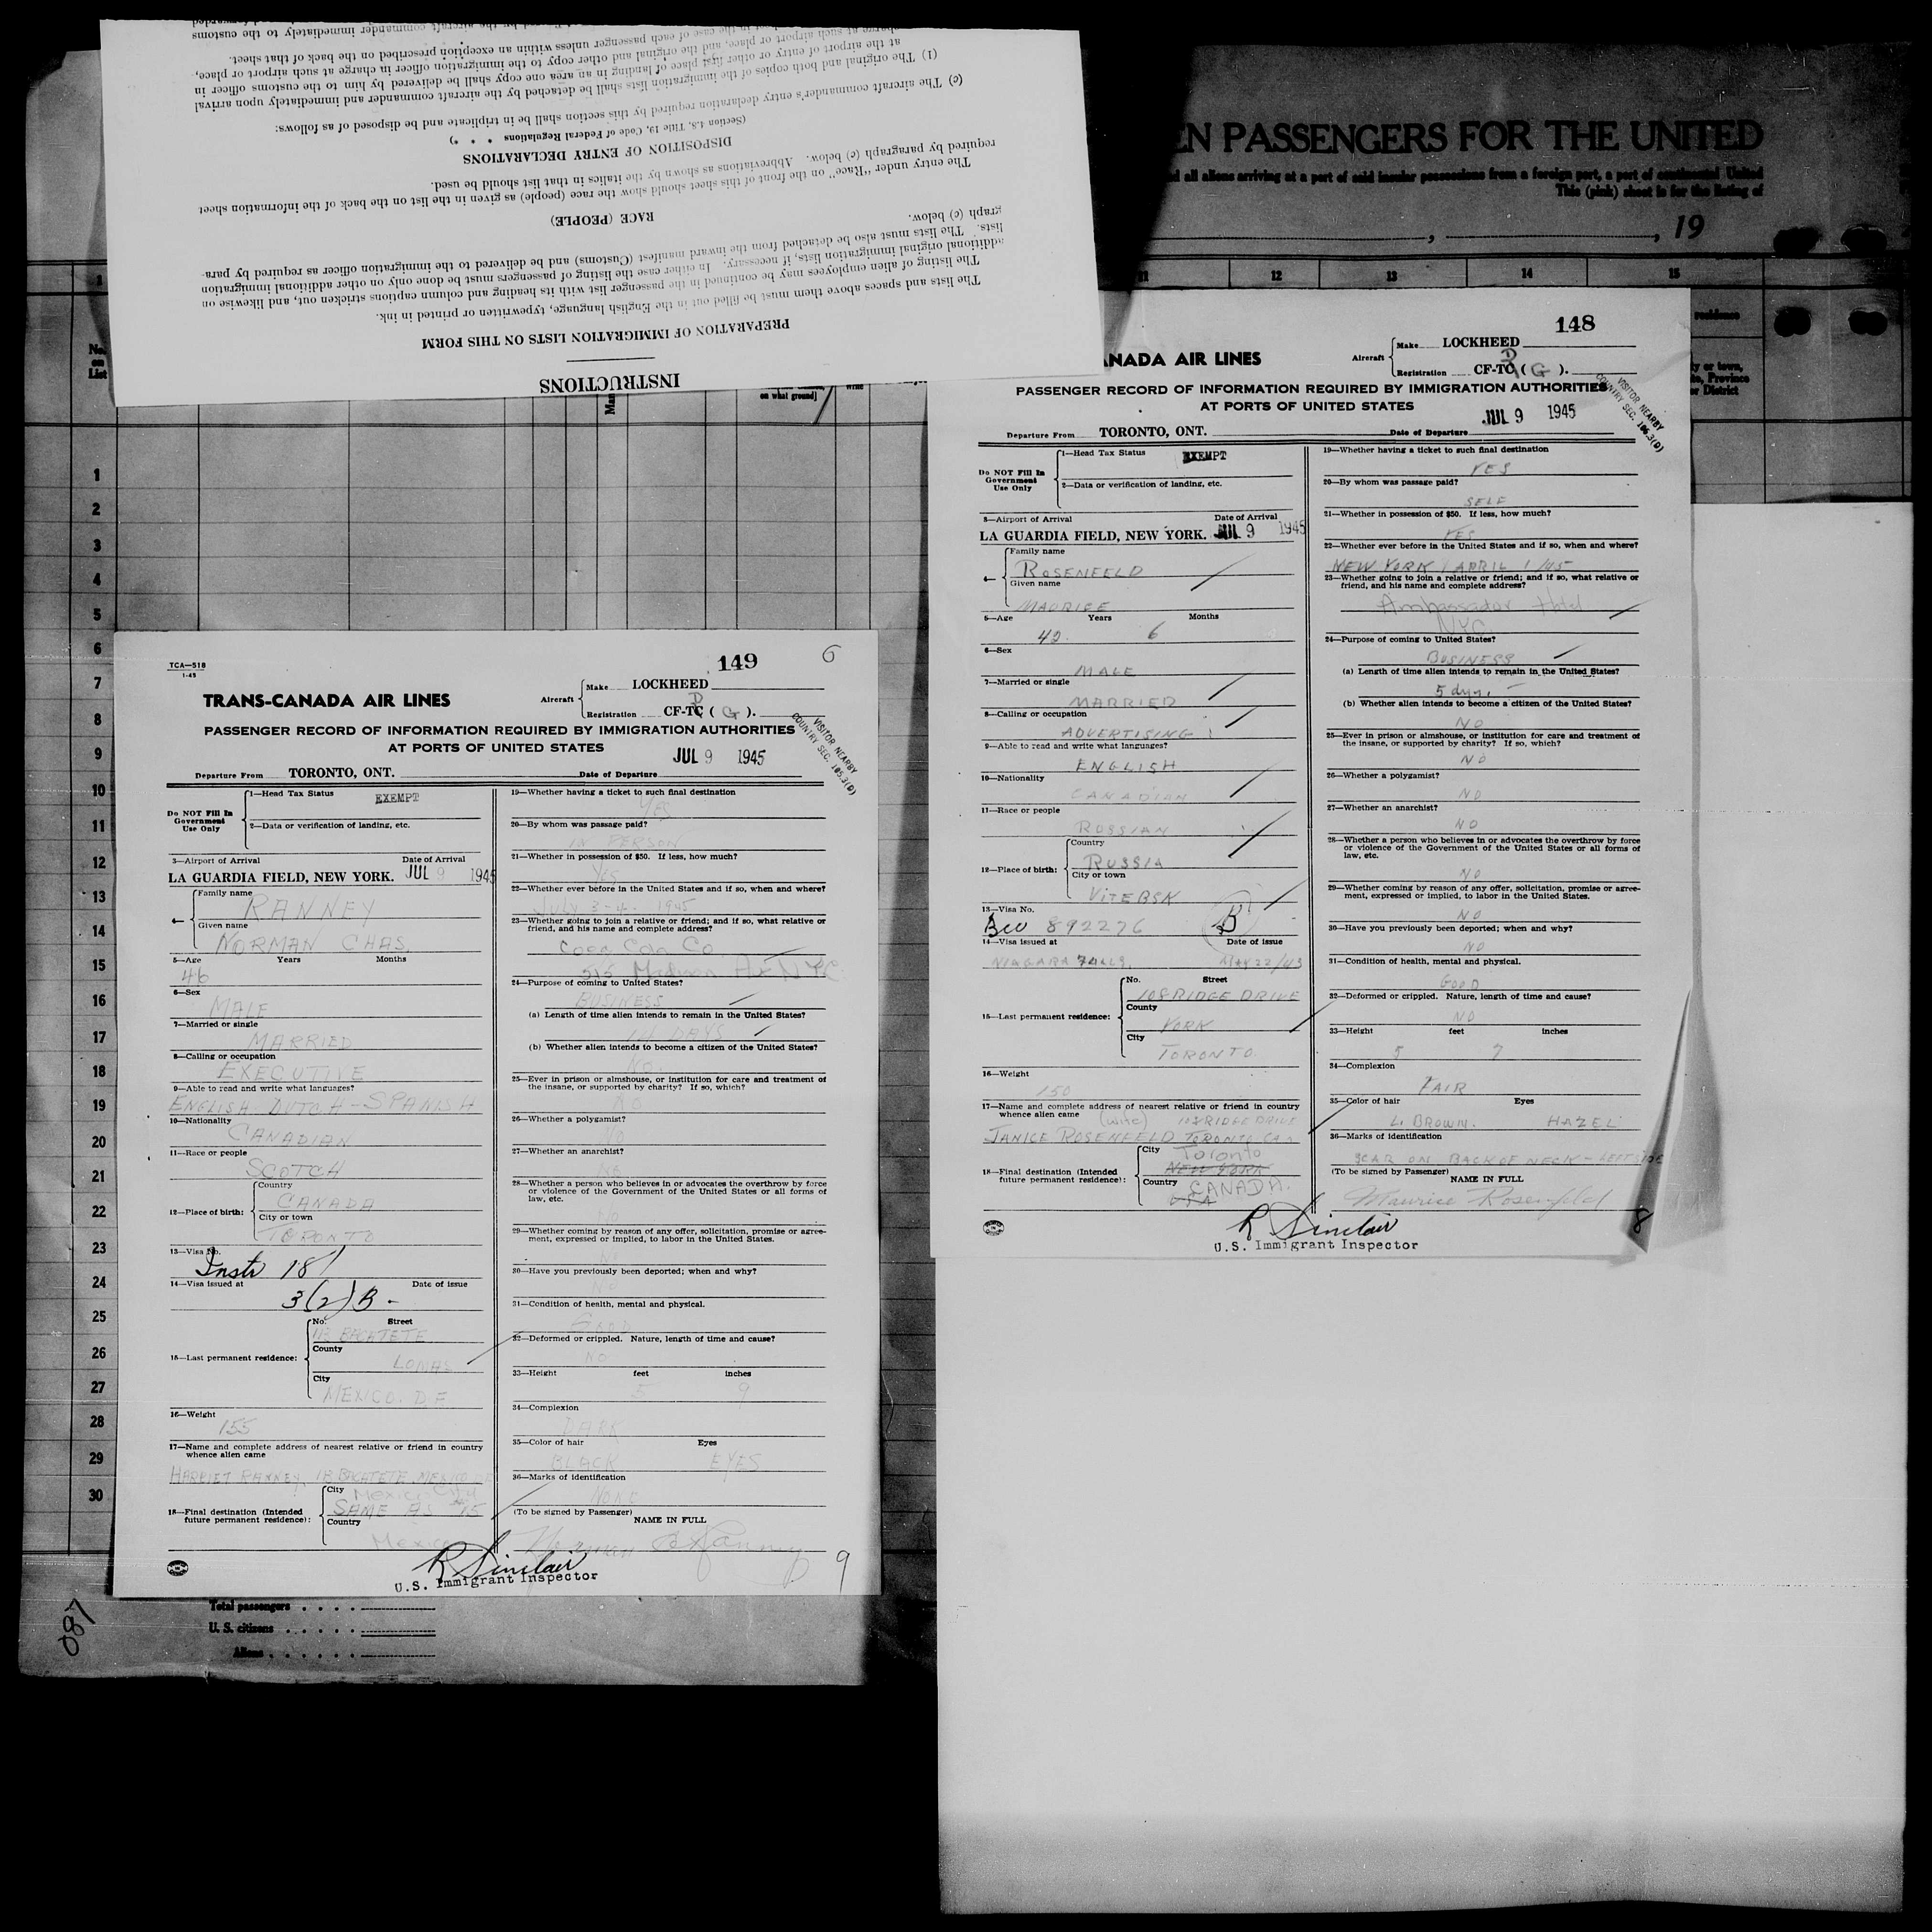 INSTRUCTIONS
PREPARATION OF IMMIGRATION LISTS ON THIS FORM
The lists and spaces above them must be filled out in the English language, typewritten or printed in ink.
The listing of alien employees may be continued in the passenger list with its heading and column captions stricken out, and likewise on
additional original immigration lists, if necessary. In either case the listing of passengers must be done only on other additional immigration
lists. The lists must also be detached from the inward manifest (Customs) and be delivered to the immigration officer as required by para-
graph (c) below.
RACE (PEOPLE)
The entry under "Race" on the front of this sheet should show the race (people) as given in the list on the back of the information sheet
required by paragraph (c) below. Abbreviations as shown by the italics in that list should be used.
DISPOSITION OF ENTRY DECLARATIONS
(Section 4.8, Title 19, Code of Federal Regulations * * *)
(c) The aircraft commander's entry declaration required by this section shall be in triplicate and be disposed of as follows:
(1) The original and both copies of the immigration lists shall be detached by the aircraft commander and immediately upon arrival
at the airport of entry or other first place of landing in an area one copy shall be delivered by him to the customs officer in
charge at such airport or place, and the original and other copy to the immigration officer in charge at such airport or place,
in the case of each passenger unless within an exception prescribed on the back of that sheet.
aircraft commander immediately to the customs
EN PASSENGERS FOR THE UNITED
all aliens arriving at a port of said insular possessions from a foreign port, a port of continental United
This (pink) sheet is for the listing of
, , 19
11 12 13 14 15
No. on List
1
2
3
4
5
6
7
8
9
10
11
12
13
14
15
16
17
18
19
20
21
22
23
24
25
26
27
28
29
30
Total passengers
U. S. citizens
Aliens
087
TCA—518
1-45
149
6
TRANS-CANADA AIR LINES
Aircraft
Make LOCKHEED
Registration CF-TC ( G ).
PASSENGER RECORD OF INFORMATION REQUIRED BY IMMIGRATION AUTHORITIES
AT PORTS OF UNITED STATES
VISITOR NEARBY
COUNTRY SEC. 165.3(D)
JUL 9 1945
Departure From TORONTO, ONT. Date of Departure
Do NOT Fill In
Government
Use Only
1—Head Tax Status EXEMPT
2—Data or verification of landing, etc.
3—Airport of Arrival Date of Arrival
LA GUARDIA FIELD, NEW YORK. JUL 9 1945
4—
Family name
RANNEY
Given name
NORMAN CHAS.
5—Age Years Months
46
6—Sex
MALE
7—Married or single
MARRIED
8—Calling or occupation
EXECUTIVE
9—Able to read and write what languages?
ENGLISH DUTCH - SPANISH
10—Nationality
CANADIAN
11—Race or people
SCOTCH
12—Place of birth:
Country
CANADA
City or town
TORONTO
13—Visa No.
Instr 18
14—Visa issued at Date of issue
3(2) B -
15—Last permanent residence:
No. Street
BACATETE
County
LOMAS
City
MEXICO. D.F.
16—Weight
155
17—Name and complete address of nearest relative or friend in country
whence alien came
HARRIET RANNEY, BACATETE MEXICO
18—Final destination (Intended
future permanent residence):
City
Mexico City
SAME AS #15
Country
Mexico
19—Whether having a ticket to such final destination
YES
20—By whom was passage paid?
IN PERSON
21—Whether in possession of $50. If less, how much?
Yes
22—Whether ever before in the United States and if so, when and where?
July 3-4 1945
23—Whether going to join a relative or friend; and if so, what relative or
friend, and his name and complete address?
Coca Cola Co
515 Madison Av NYC
24—Purpose of coming to United States?
BUSINESS
(a) Length of time alien intends to remain in the United States?
DAYS
(b) Whether alien intends to become a citizen of the United States?
NO.
25—Ever in prison or almshouse, or institution for care and treatment of
the insane, or supported by charity? If so, which?
NO
26—Whether a polygamist?
NO
27—Whether an anarchist?
NO
28—Whether a person who believes in or advocates the overthrow by force
or violence of the Government of the United States or all forms of
law, etc.
NO
29—Whether coming by reason of any offer, solicitation, promise or agree-
ment, expressed or implied, to labor in the United States.
NO
30—Have you previously been deported; when and why?
NO
31—Condition of health, mental and physical.
GOOD
32—Deformed or crippled. Nature, length of time and cause?
NO
33—Height feet inches
5 9
34—Complexion
DARK
35—Color of hair Eyes
BLACK EYES
36—Marks of identification
NONE
(To be signed by Passenger)
NAME IN FULL
Norman C Ranney
R Sinclair
U.S. Immigrant Inspector
9
148
ANADA AIR LINES
Aircraft
Make LOCKHEED
Registration CF-TC ( G ).
PASSENGER RECORD OF INFORMATION REQUIRED BY IMMIGRATION AUTHORITIES
AT PORTS OF UNITED STATES
VISITOR NEARBY
COUNTRY SEC. 165.3(D)
JUL 9 1945
Departure From TORONTO, ONT. Date of Departure
Do NOT Fill In
Government
Use Only
1—Head Tax Status EXEMPT
2—Data or verification of landing, etc.
3—Airport of Arrival Date of Arrival
LA GUARDIA FIELD, NEW YORK. JUL 9 1945
4—
Family name
ROSENFELD
Given name
MAURICE
5—Age Years Months
42. 6
6—Sex
MALE
7—Married or single
MARRIED
8—Calling or occupation
ADVERTISING
9—Able to read and write what languages?
ENGLISH
10—Nationality
CANADIAN
11—Race or people
RUSSIAN
12—Place of birth:
Country
RUSSIA
City or town
VITEBSK
13—Visa No.
Bcc 892276 B
14—Visa issued at Date of issue
NIAGARA FALLS. MAY 22/43
15—Last permanent residence:
No. Street
108 RIDGE DRIVE
County
YORK
City
TORONTO.
16—Weight
150
17—Name and complete address of nearest relative or friend in country
whence alien came
(wife) 108 RIDGE DRIVE
JANICE ROSENFELD TORONTO CAN
18—Final destination (Intended
future permanent residence):
City
Toronto
NEW YORK
Country CANADA.
USA
19—Whether having a ticket to such final destination
YES
20—By whom was passage paid?
SELF
21—Whether in possession of $50. If less, how much?
YES
22—Whether ever before in the United States and if so, when and where?
NEW YORK / APRIL 1/45
23—Whether going to join a relative or friend; and if so, what relative or
friend, and his name and complete address?
Ambassador Hotel
NYC.
24—Purpose of coming to United States?
BUSINESS
(a) Length of time alien intends to remain in the United States?
5 dys.
(b) Whether alien intends to become a citizen of the United States?
NO
25—Ever in prison or almshouse, or institution for care and treatment of
the insane, or supported by charity? If so, which?
NO
26—Whether a polygamist?
NO
27—Whether an anarchist?
NO
28—Whether a person who believes in or advocates the overthrow by force
or violence of the Government of the United States or all forms of
law, etc.
NO
29—Whether coming by reason of any offer, solicitation, promise or agree-
ment, expressed or implied, to labor in the United States.
NO
30—Have you previously been deported; when and why?
NO
31—Condition of health, mental and physical.
GOOD
32—Deformed or crippled. Nature, length of time and cause?
NO
33—Height feet inches
5 7
34—Complexion
FAIR
35—Color of hair Eyes
L. BROWN. HAZEL
36—Marks of identification
SCAR ON BACK OF NECK - LEFT SIDE
(To be signed by Passenger)
NAME IN FULL
Maurice Rosenfeld
R Sinclair
U.S. Immigrant Inspector
8